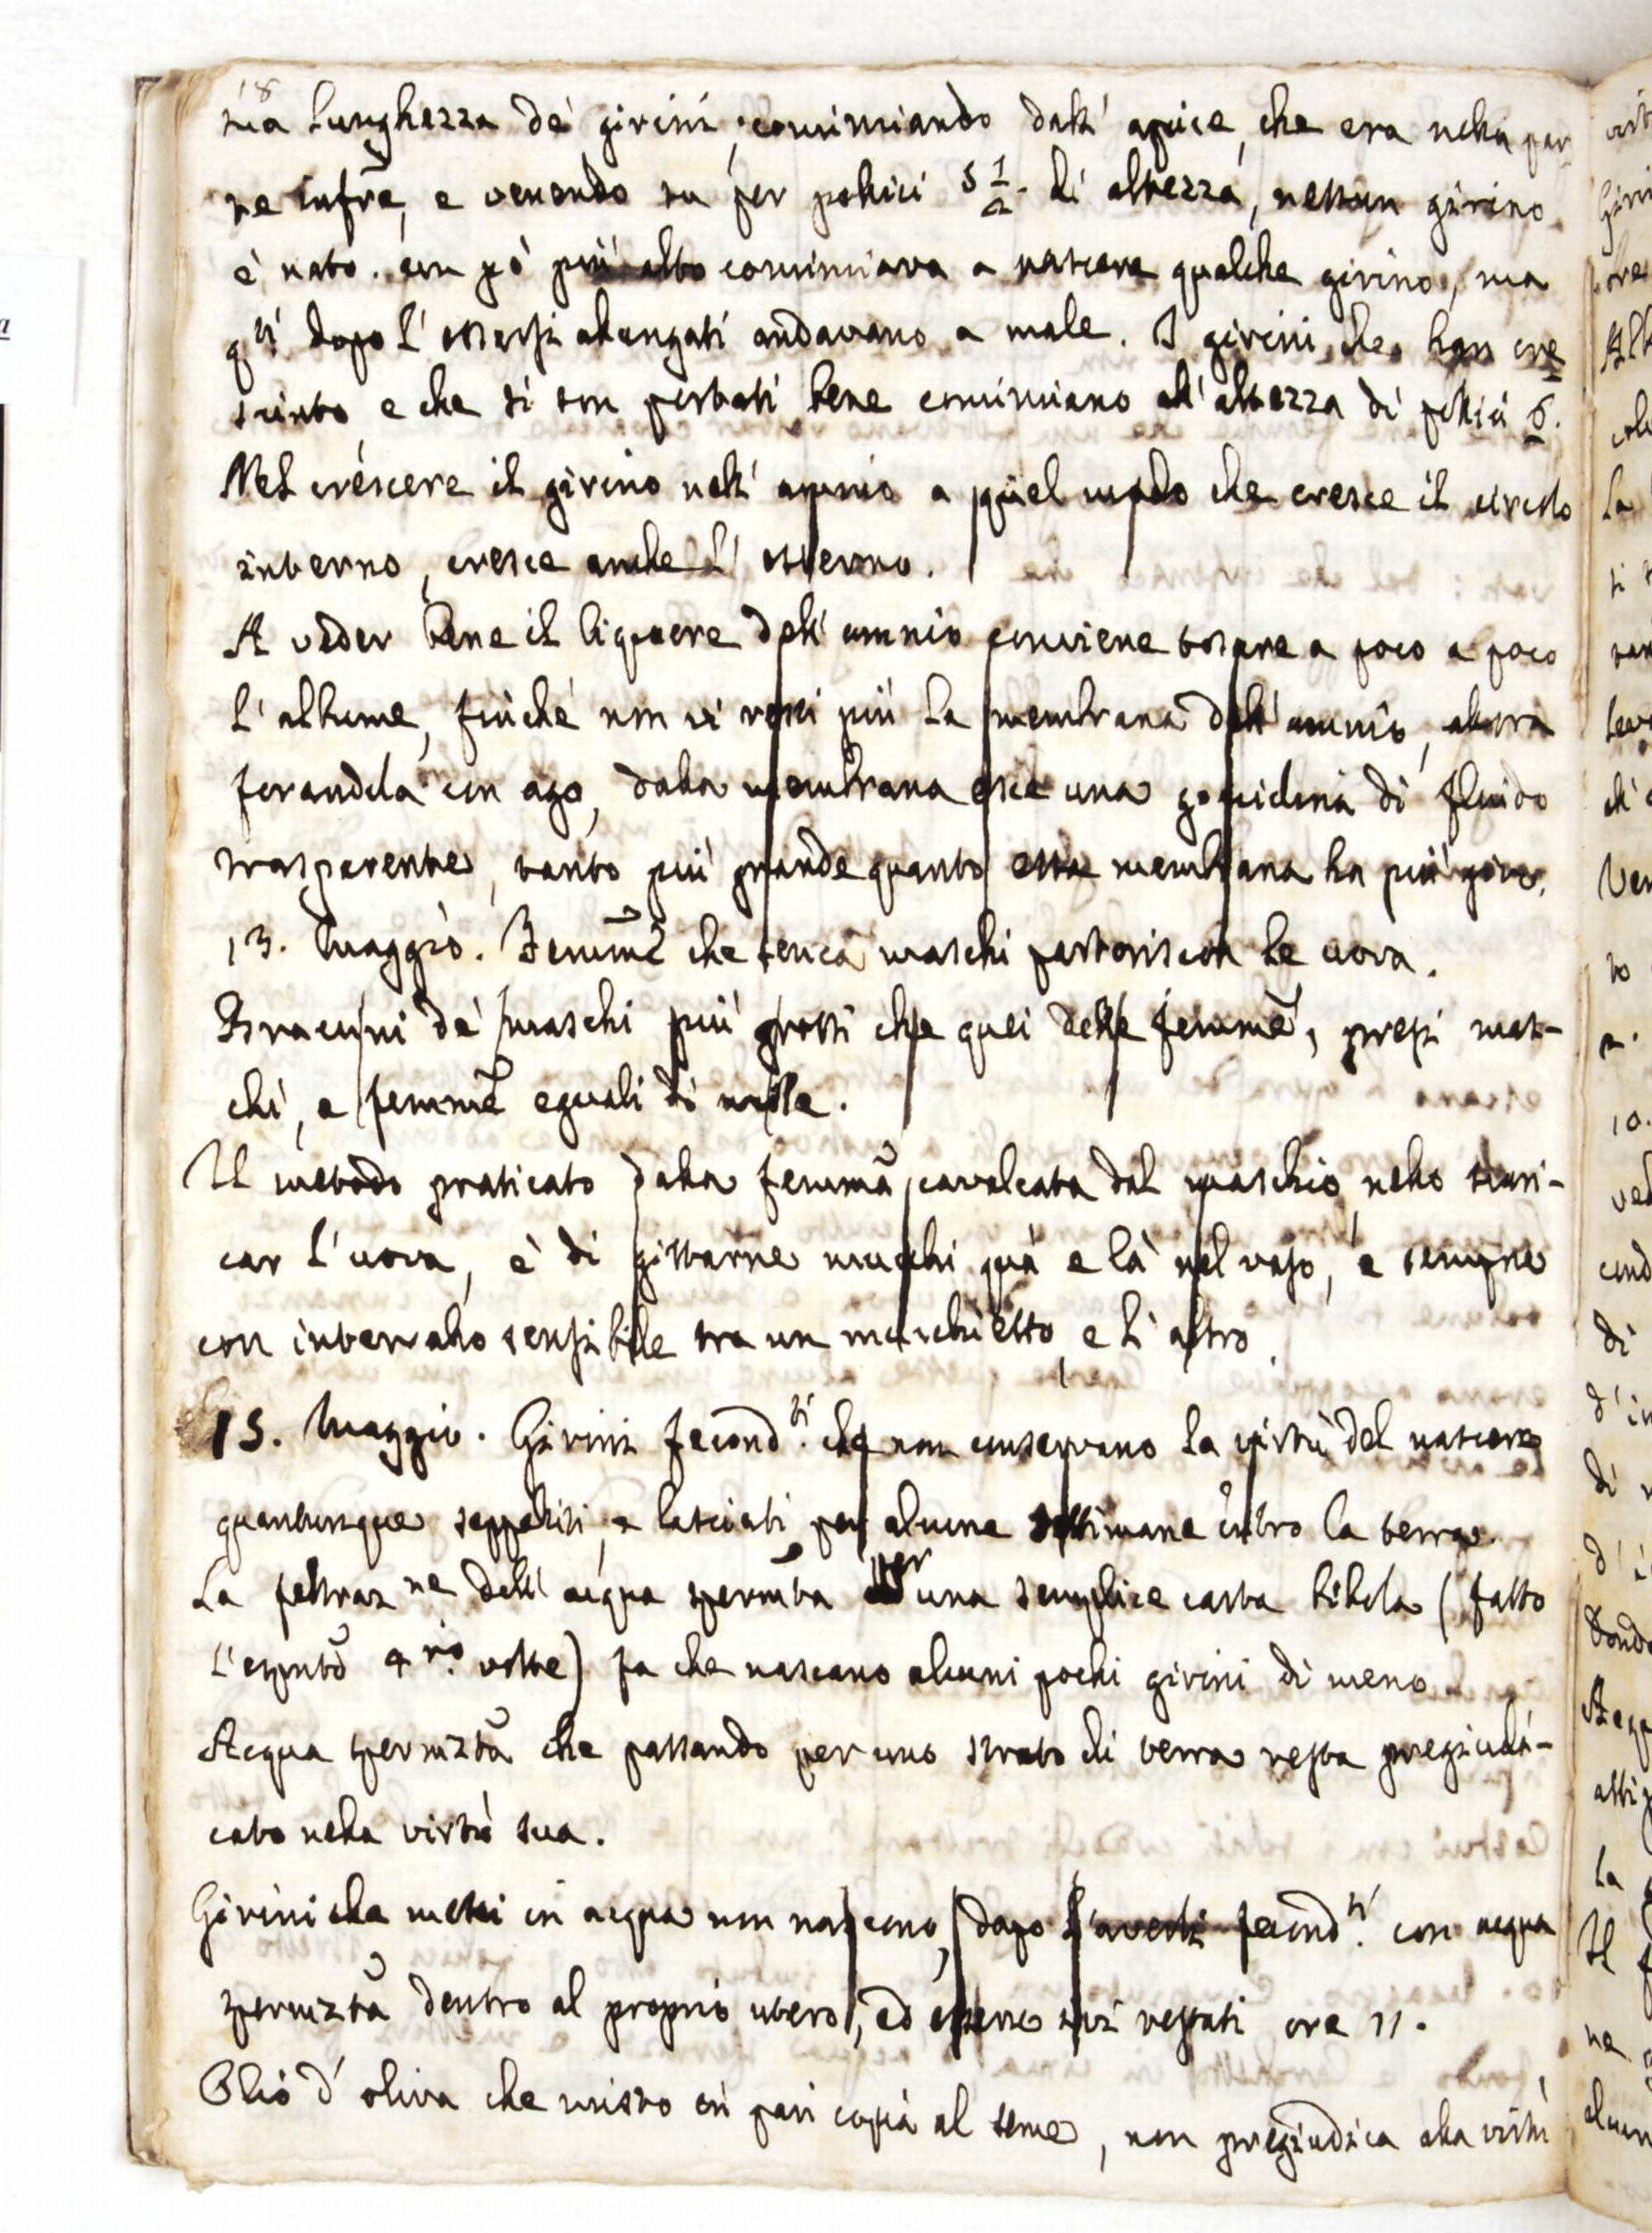 18
sua lunghezza de' girini, cominciando dall' apice, che era nella par
te infre, e venendo su per pollici 5 1/2. di altezza, nessun girino
è nato. un pò più alto cominciava a nascere qualche girino, ma
qti dopo l' essersi allungati andavano a male. I girini, che han cre
sciuto e che si son portati bene cominciano all' altezza di pollici 6.
Nel crescere il girino nell' amnio a quel modo che cresce il circolo
interno, cresce anche l' esterno.
A veder bene il liquore dell' amnio conviene tosare a poco a poco
l' albume, finchè non vi resti più la membrana dell' amnio, allora
forandola con ago, dalla membrana esce una gocciolina di fluido
trasparente, tanto più grande quanto essa membrana ha più giro.
13. Maggio. Femme che senca maschi partoriscon le uova.
Bracciuni de' maschi più grossi che quei delle femme, presi mas-
chi, e femme eguali di mole.
Il metodo praticato dalla femma cavalcata dal maschio nello scari-
car l' uova, è di gittarne mucchi quà e là nel vaso, e sempre
con intervallo sensibile tra un mucchietto e l' altro
15. Maggio. Girini fecondti. che non conservano la virtù del nascere
quantunque seppelliti, e lasciati per alcune settimane entro la terra.
La feltrazne dell' acqua spermta per una semplice carta bibola (fatto
l' espmto 4ro. volte) fa che nascano alcuni pochi girini di meno
Acqua spermzta che passando per uno strato di terra resta pregiudi-
cato nella virtù sua.
Girini che messi in acqua non nascono, dopo l' averli fecondti. con acqua
spermzta dentro al proprio utero, ed essere ivi restati ore 11.
Olio d' oliva che misto in pari copia al seme, non pregiudica alla virtù